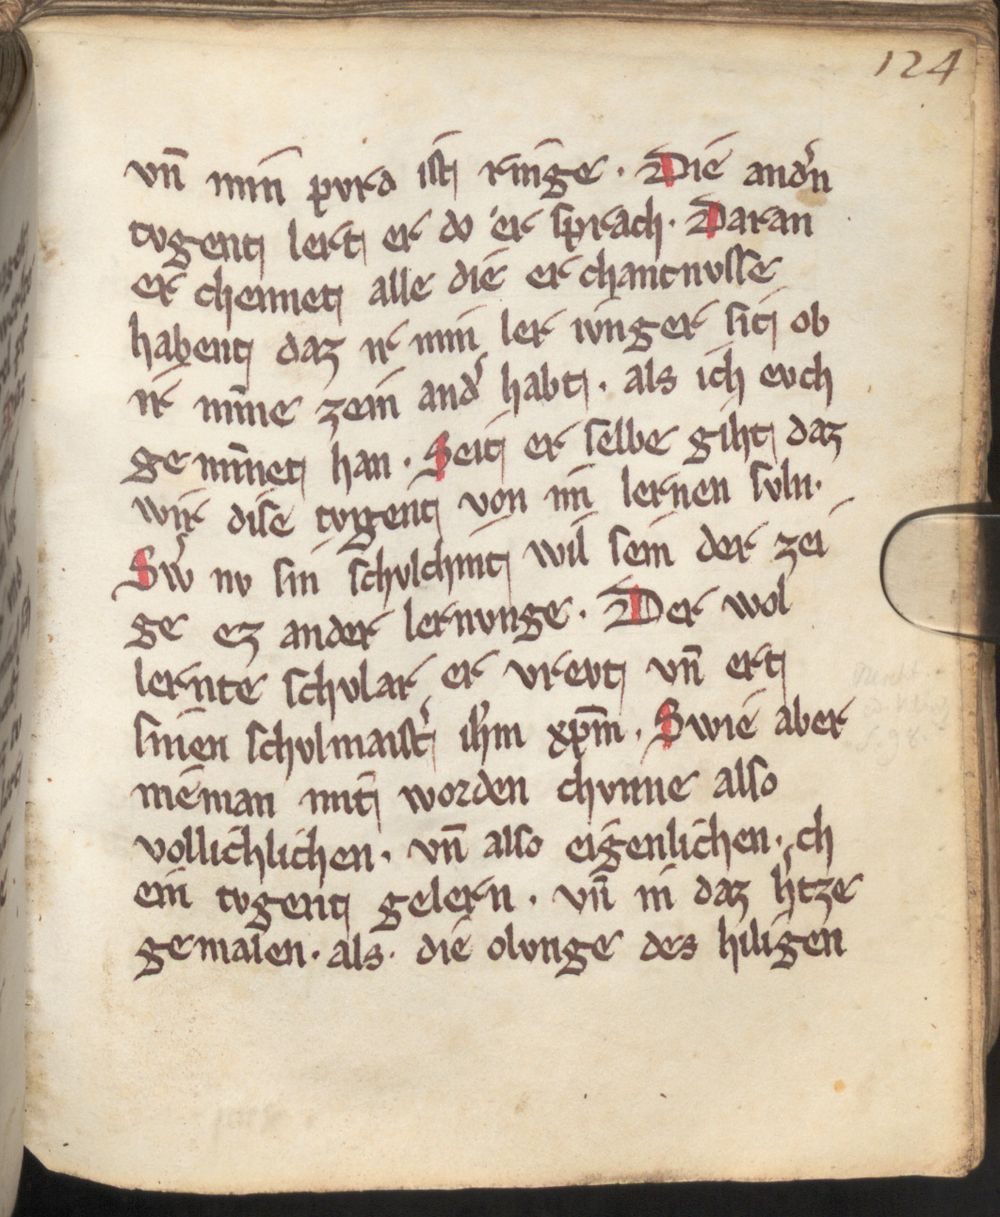 124
vn̄ min pvrd ist ringe · Die andˀn
tvgent lert er do er sprach · Daran
er chennet alle die erchantnvsse
habent daz ir min ler ivnger sit ob
ir mīne zein andˀ habt · als ich evch
gemīnet han · Seit er selbe giht daz
wir dise tvgent von im lernen svln ·
Swˀ nv sin schvlchint wil sein der zei
ge ez ander lernvnge · Der wol
lernte schvlar er vrevt vn̄ ert
sinen schvlmaistˀ ihm̄ xpm̄ · Swie aber
nieman mit worden chvnne also
vollichlichen · vn̄ also eigenlichen · ich
ein tvgent gelern · vn̄ in daz hˀtze
gemalen · als · die olvnge des hiligen